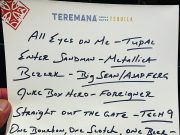 TEREMANA TEQUILA
All Eyes on Me - Tupac
Enter Sandman - Metallica
Bezerk - Big Sean/A$AP Ferg
Juke Box Hero - Foreigner
Straight Out the Gate - Tech 9
One Bourbon, One Scotch, One Beer -